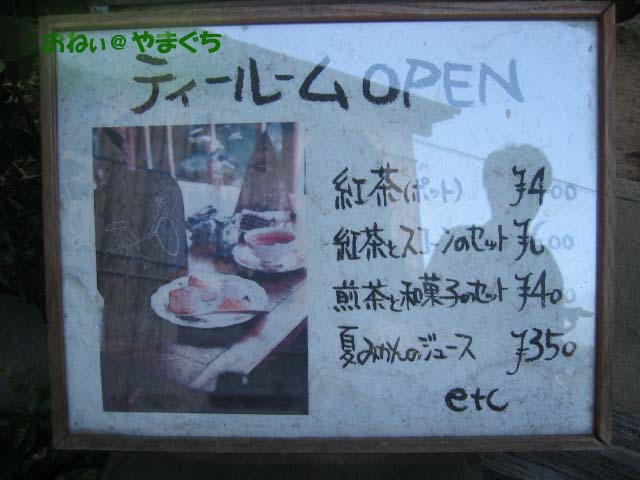 おねぃ@やまぐち
ティールーム OPEN
紅茶(ポット) ¥400
紅茶とスコーンのセット ¥600
煎茶と和菓子のセット ¥400
夏みかんのジュース ¥350
etc